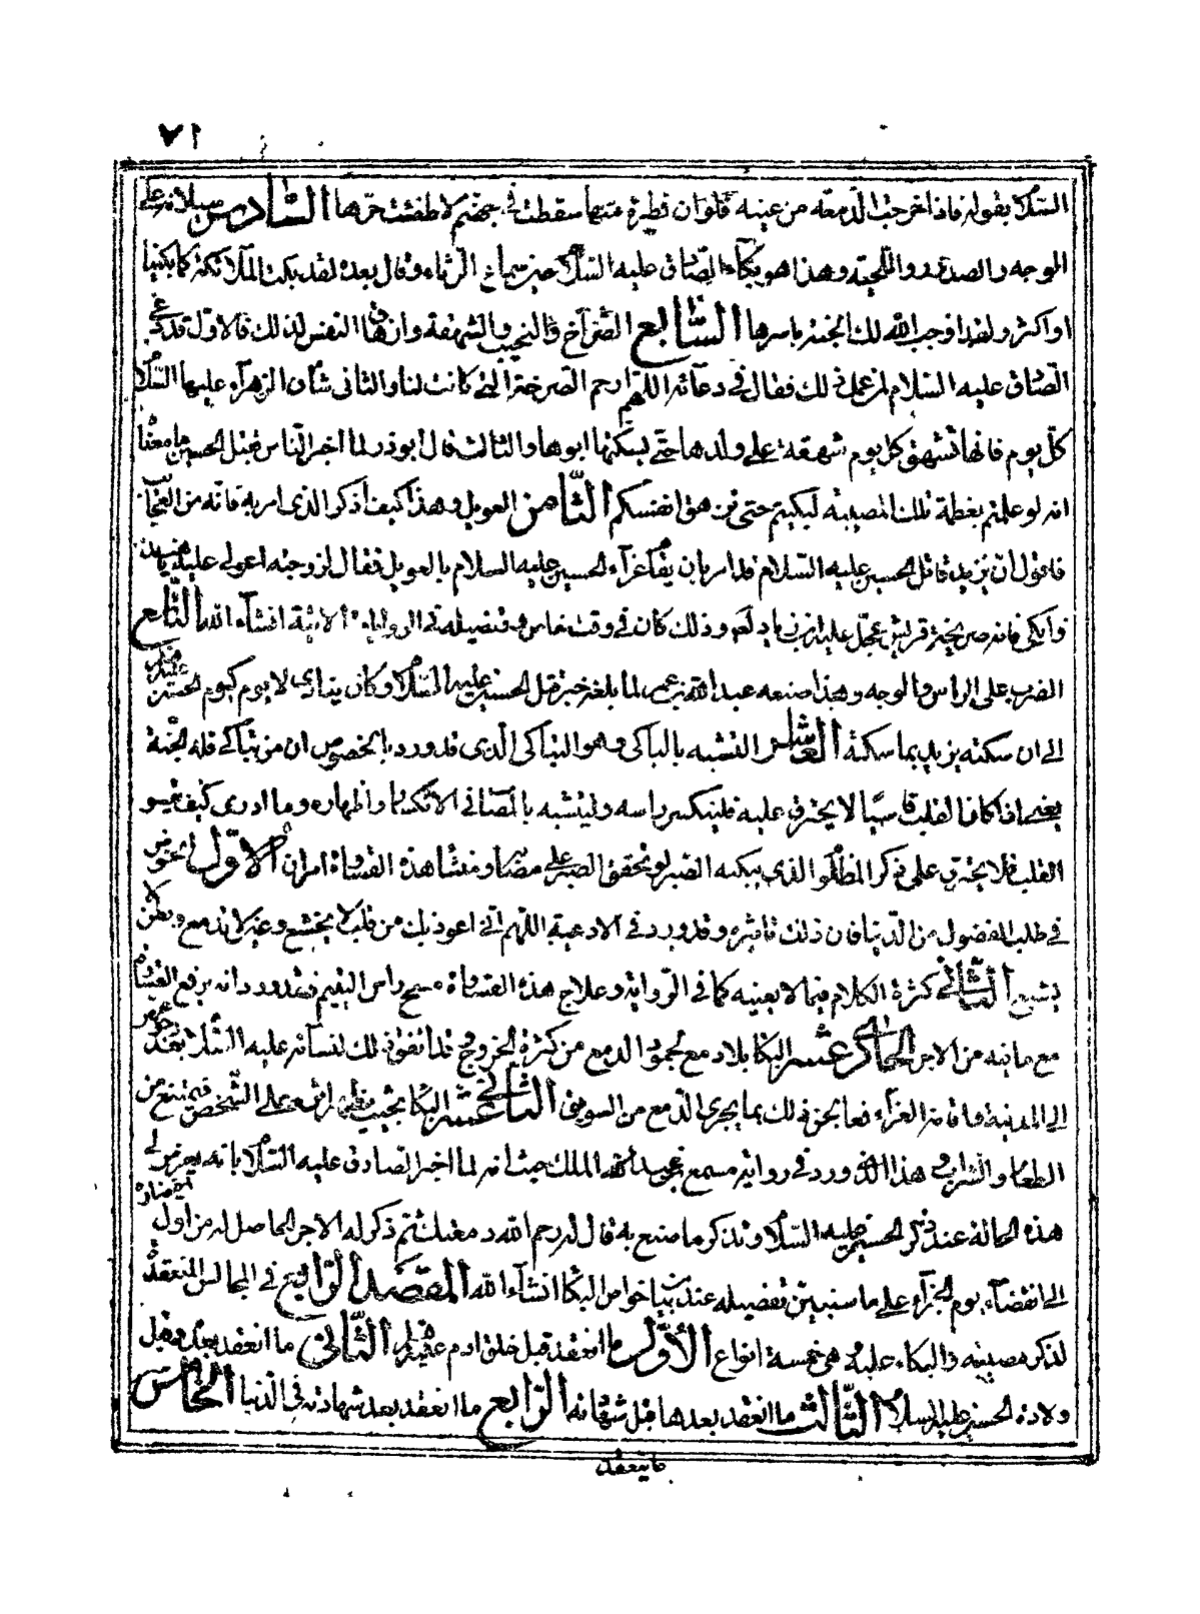 ٧١
السّلام بقوله فاذا خرجت الدّمعة من عينه فلو ان قطرة منها سقطت في جهنم لاطفئت حرّها السّادس سيلانه على
الوجه والصدر واللحية وهذا هو بكاء الصّادق عليه السّلام حين سماع الرثاء وقال بعده لقد بكت الملائكة كما بكينا
او اكثر ولقد اوجب اللّه لك الجنة باسرها السّابع الصّراخ والنحيب والشهقة وازهاق النفس لذلك فالاول قد دعى
الصّادق عليه السّلام لمن عمل ذلك فقال في دعائه اللّهم ارحم الصرخة الّتي كانت لنا والثاني شأن الزهرآء عليها السّلام
كلّ يوم فانها تشهق كل يوم شهقة على ولدها حتّى يسكتها ابوها والثالث قال ابوذر لما اخبر النّاس بقتل الحسين ما معناه
انه لو علمتم بعظمة تلك المصيبة لبكيتم حتى تزهق انفسكم الثّامن العويل وهذا كيف اذكر الذي امر به فانه من العجائب
فاقول ان يزيد قاتل الحسين عليه السّلام قد امر بان يقام عزآء الحسين عليه السلام بالعويل فقال لزوجته اعولي عليه يا هند
وابكي فانه صريخة قريش عجّل عليه ابن زياد لعنه وذلك كان في وقت خاص وتفصيله في الروايات الاتية انشآء اللّه التّاسع
الضرب على الراس والوجه وهذا صنعه عبد اللّه بن عمر لما بلغه خبر قتل الحسين عليه السّلام وكان ينادي لا يوم كيوم الحسين
الى ان سكته يزيد بما سكته العاشر التشبه بالباكي وهو التباكي الذي قد ورد بالخصوص ان من تباكى فله الجنة
يعني اذا كان القلب قاسيا لا يحترق عليه فلينكس راسه وليتشبه بالصافي الانكسار واظهاره وما ادرى كيف يقسو
القلب فلا يحترق على ذكر المظلوم الذي يبكيه الصبر لو تحقق الصبر على مصابه ومنشا هذه القساوة امران الاوّل الخوض
في طلب الفضول من الدّنيا فان ذلك تاثيره وقد ورد في الادعية اللّهم انّي اعوذ بك من قلب لا يخشع وعين لا تدمع وبطن لا
يشبع الثّاني كثرة الكلام فيما لا يعنيه كما في الرّواية وعلاج هذه القساوة مسح راس اليتيم فقد ورد انه يرفع القساوة
مع ما فيه من الاجر الحادي عشر البكآ بلا دمع لجمود الدمع من كثرة الخروج قد اتفق ذلك لنسآئه عليه السّلام بعد رجوعهم
الى المدينة واقامة العزاء فعالجن ذلك بما يجرى الدّمع من السويق الثّاني عشر البكآ بحيث يظهر اثره على الشّخص فيمتنع من
الطعام والشراب وهذا الذي ورد في رواية مسمع بن عبد الملك حيث انه لما اخبر الصّادق عليه السّلام بانه يعرض لي
هذه الحالة عند ذكر الحسين عليه السّلام وتذكر ما صنع به قال له رحم اللّه دمعتك ثم ذكر له الاجر الحاصل له من اول احتضاره
الى انقضآء يوم الجزآء على ما سنبيّن تفصيله عند بيان خواص البكآ انشآء اللّه المقصد الرّابع في المجالس المنعقدة
لذكر مصيبته والبكاء عليه وهي خمسة انواع الاوّل ما انعقد قبل خلق ادم الثّاني ما انعقد بعده وقبل
ولادة الحسين عليه السلام الثّالث ما انعقد بعدها قبل شهادته الرّابع ما انعقد بعد شهادته في الدّنيا الخامس
ما ينعقد